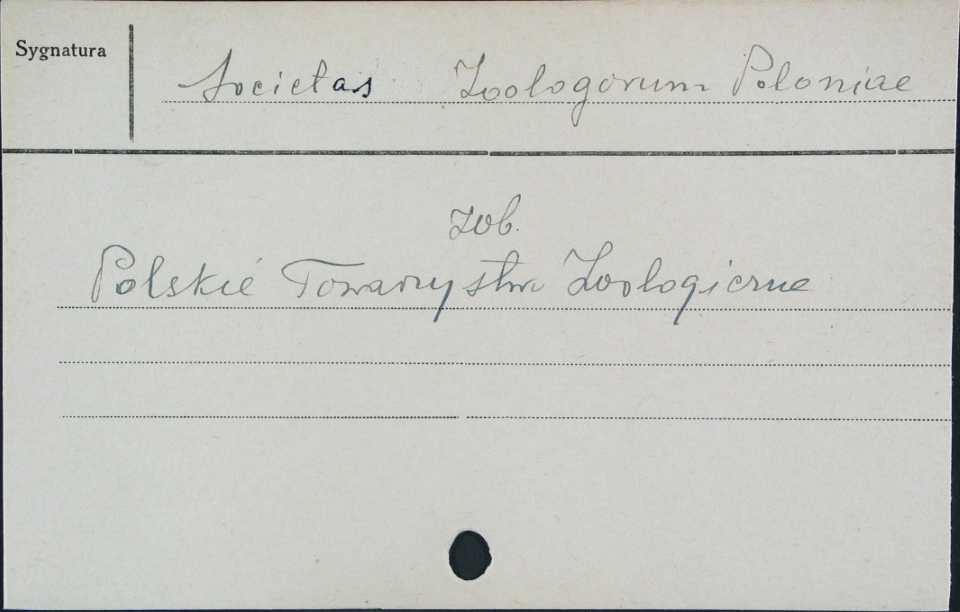 Sygnatura
Societas Zoologorum Poloniae
zob.
Polskie Towarzystwo Zoologiczne